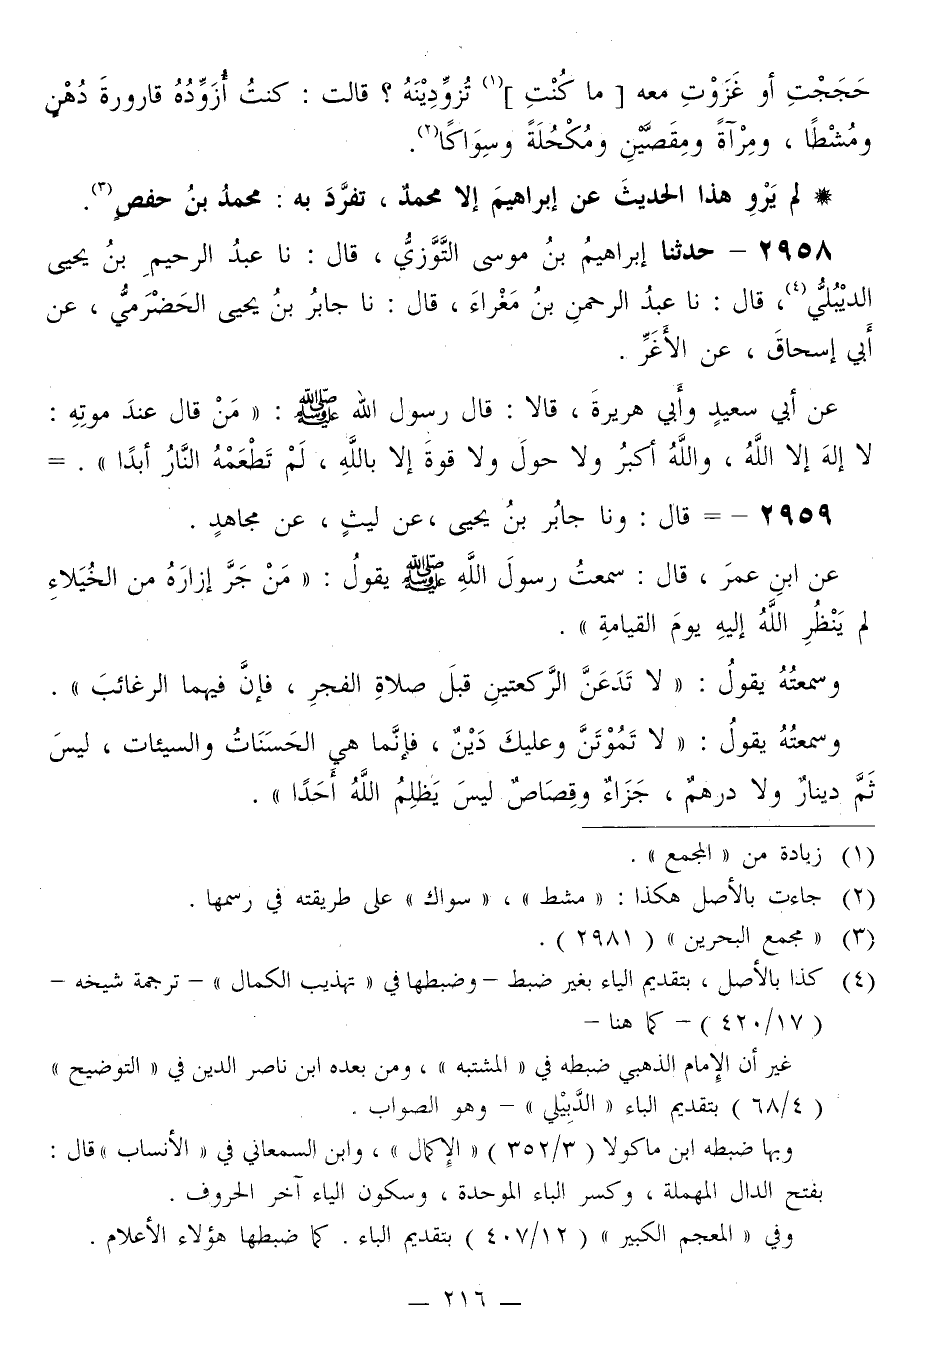 حَجَجْتِ أو غَزَوْتِ معه [ ما كُنْتِ ](١) تُزوِّدِيْنَهُ ؟ قالت : كنتُ أُزَوِّدُهُ قارورةَ دُهْنٍ
ومُشْطًا ، ومِرْآةً ومِقَصَّيْنِ ومُكْحُلَةً وسِوَاكًا(٢).
* لم يَرْوِ هذا الحديثَ عن إبراهيمَ إلا محمدٌ ، تفرَّدَ به : محمدُ بنُ حفصٍ(٣).
٢٩٥٨ – حدثنا إبراهيمُ بنُ موسى التَّوَّزيُّ ، قال : نا عبدُ الرحيمِ بنُ يحيى
الديْبُليُّ(٤)، قال : نا عبدُ الرحمنِ بنُ مَغْراءَ ، قال : نا جابرُ بنُ يحيى الحَضْرَميُّ ، عن
أَبي إسحاقَ ، عن الأَغَرِّ .
عن أبي سعيدٍ وأَبي هريرةَ ، قالا : قال رسول الله ﷺ : « مَنْ قال عندَ موتِهِ :
لا إلهَ إلا اللَّهُ ، واللَّهُ أكبرُ ولا حولَ ولا قوةَ إلا باللَّهِ ، لَمْ تَطْعَمْهُ النَّارُ أبدًا » . =
٢٩٥٩ – = قال : ونا جابُر بنُ يحيى ،عن ليثٍ ، عن مجاهدٍ .
عن ابنِ عمرَ ، قال : سمعتُ رسولَ اللَّهِ ﷺ يقولُ : « مَنْ جَرَّ إزارَهُ من الخُيَلاءِ
لم يَنْظُرِ اللَّهُ إليهِ يومَ القيامةِ » .
وسمعتُهُ يقولُ : « لا تَدَعَنَّ الرَّكعتينِ قبلَ صلاةِ الفجرِ ، فإنَّ فيهما الرغائبَ » .
وسمعتُهُ يقولُ : « لا تَمُوْتَنَّ وعليكَ دَيْنٌ ، فإنَّما هي الحَسَنَاتُ والسيئات ، ليسَ
ثَمَّ دينارٌ ولا درهمٌ ، جَزَاءٌ وقِصَاصٌ ليسَ يَظلِمُ اللَّهُ أَحَدًا » .
(١) زيادة من « المجمع » .
(٢) جاءت بالأصل هكذا : « مشط » ، « سواك » على طريقته في رسمها .
(٣) « مجمع البحرين » ( ٢٩٨١ ) .
(٤) كذا بالأصل ، بتقديم الياء بغير ضبط – وضبطها في « تهذيب الكمال » – ترجمة شيخه –
( ٤٢٠/١٧ ) – كما هنا –
غير أن الإمام الذهبي ضبطه في « المشتبه » ، ومن بعده ابن ناصر الدين في « التوضيح »
( ٦٨/٤ ) بتقديم الباء « الدَّبِيْلي » – وهو الصواب .
وبها ضبطه ابن ماكولا ( ٣٥٢/٣ ) « الإكمال » ، وابن السمعاني في « الأنساب » قال :
بفتح الدال المهملة ، وكسر الباء الموحدة ، وسكون الياء آخر الحروف .
وفي « المعجم الكبير » ( ٤٠٧/١٢ ) بتقديم الباء . كما ضبطها هؤلاء الأعلام .
– ٢١٦ –